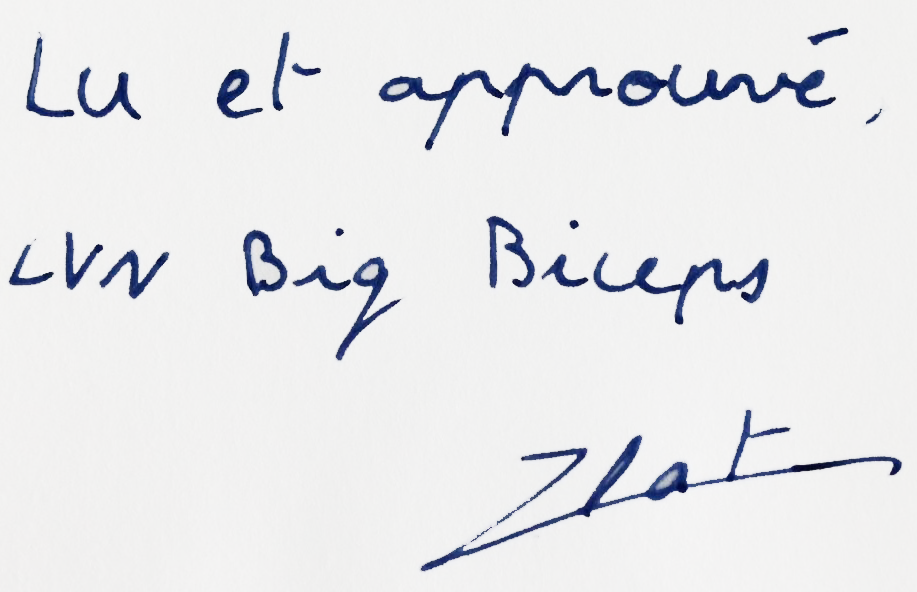 Lu et approuvé,
LVN Big Biceps
Zlat